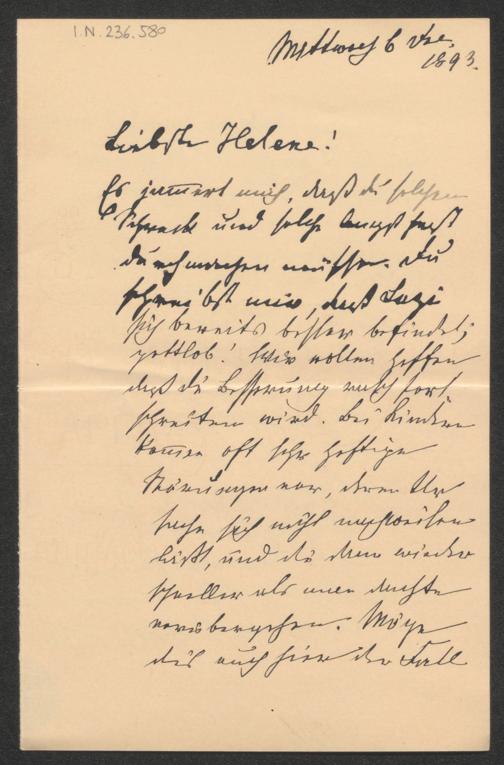 I.N. 236.580
Mittwoch 6 Dze.
1893.
Liebste Helene!
Es jam̄ert mich, daß du solchen
Schreck und solche Angst hast
durchmachen müssen. Du
schreibst mir, daß
sich bereits besser befindet;
gottlob! Wir wollen hoffen
daß die Besserung rasch fort
schreiten wird. Bei Kindern
kom̄en oft sehr heftige
Störungen vor, deren Ur
sache sich nicht nachweisen
läßt, und die dann wieder
schneller als man dachte
vorübergehen. Möge
dies auch hier der Fall